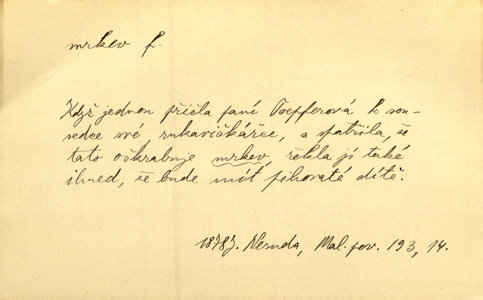 mrkev f.
Když jednou přišla paní Toepferová k sou-
sedce své rukavičkářce, a spatřila, že
tato oškrabuje mrkev, řekla jí také
ihned, že bude mít pihovaté dítě.
1878 J. Neruda, Mal. pov. 193, 14.